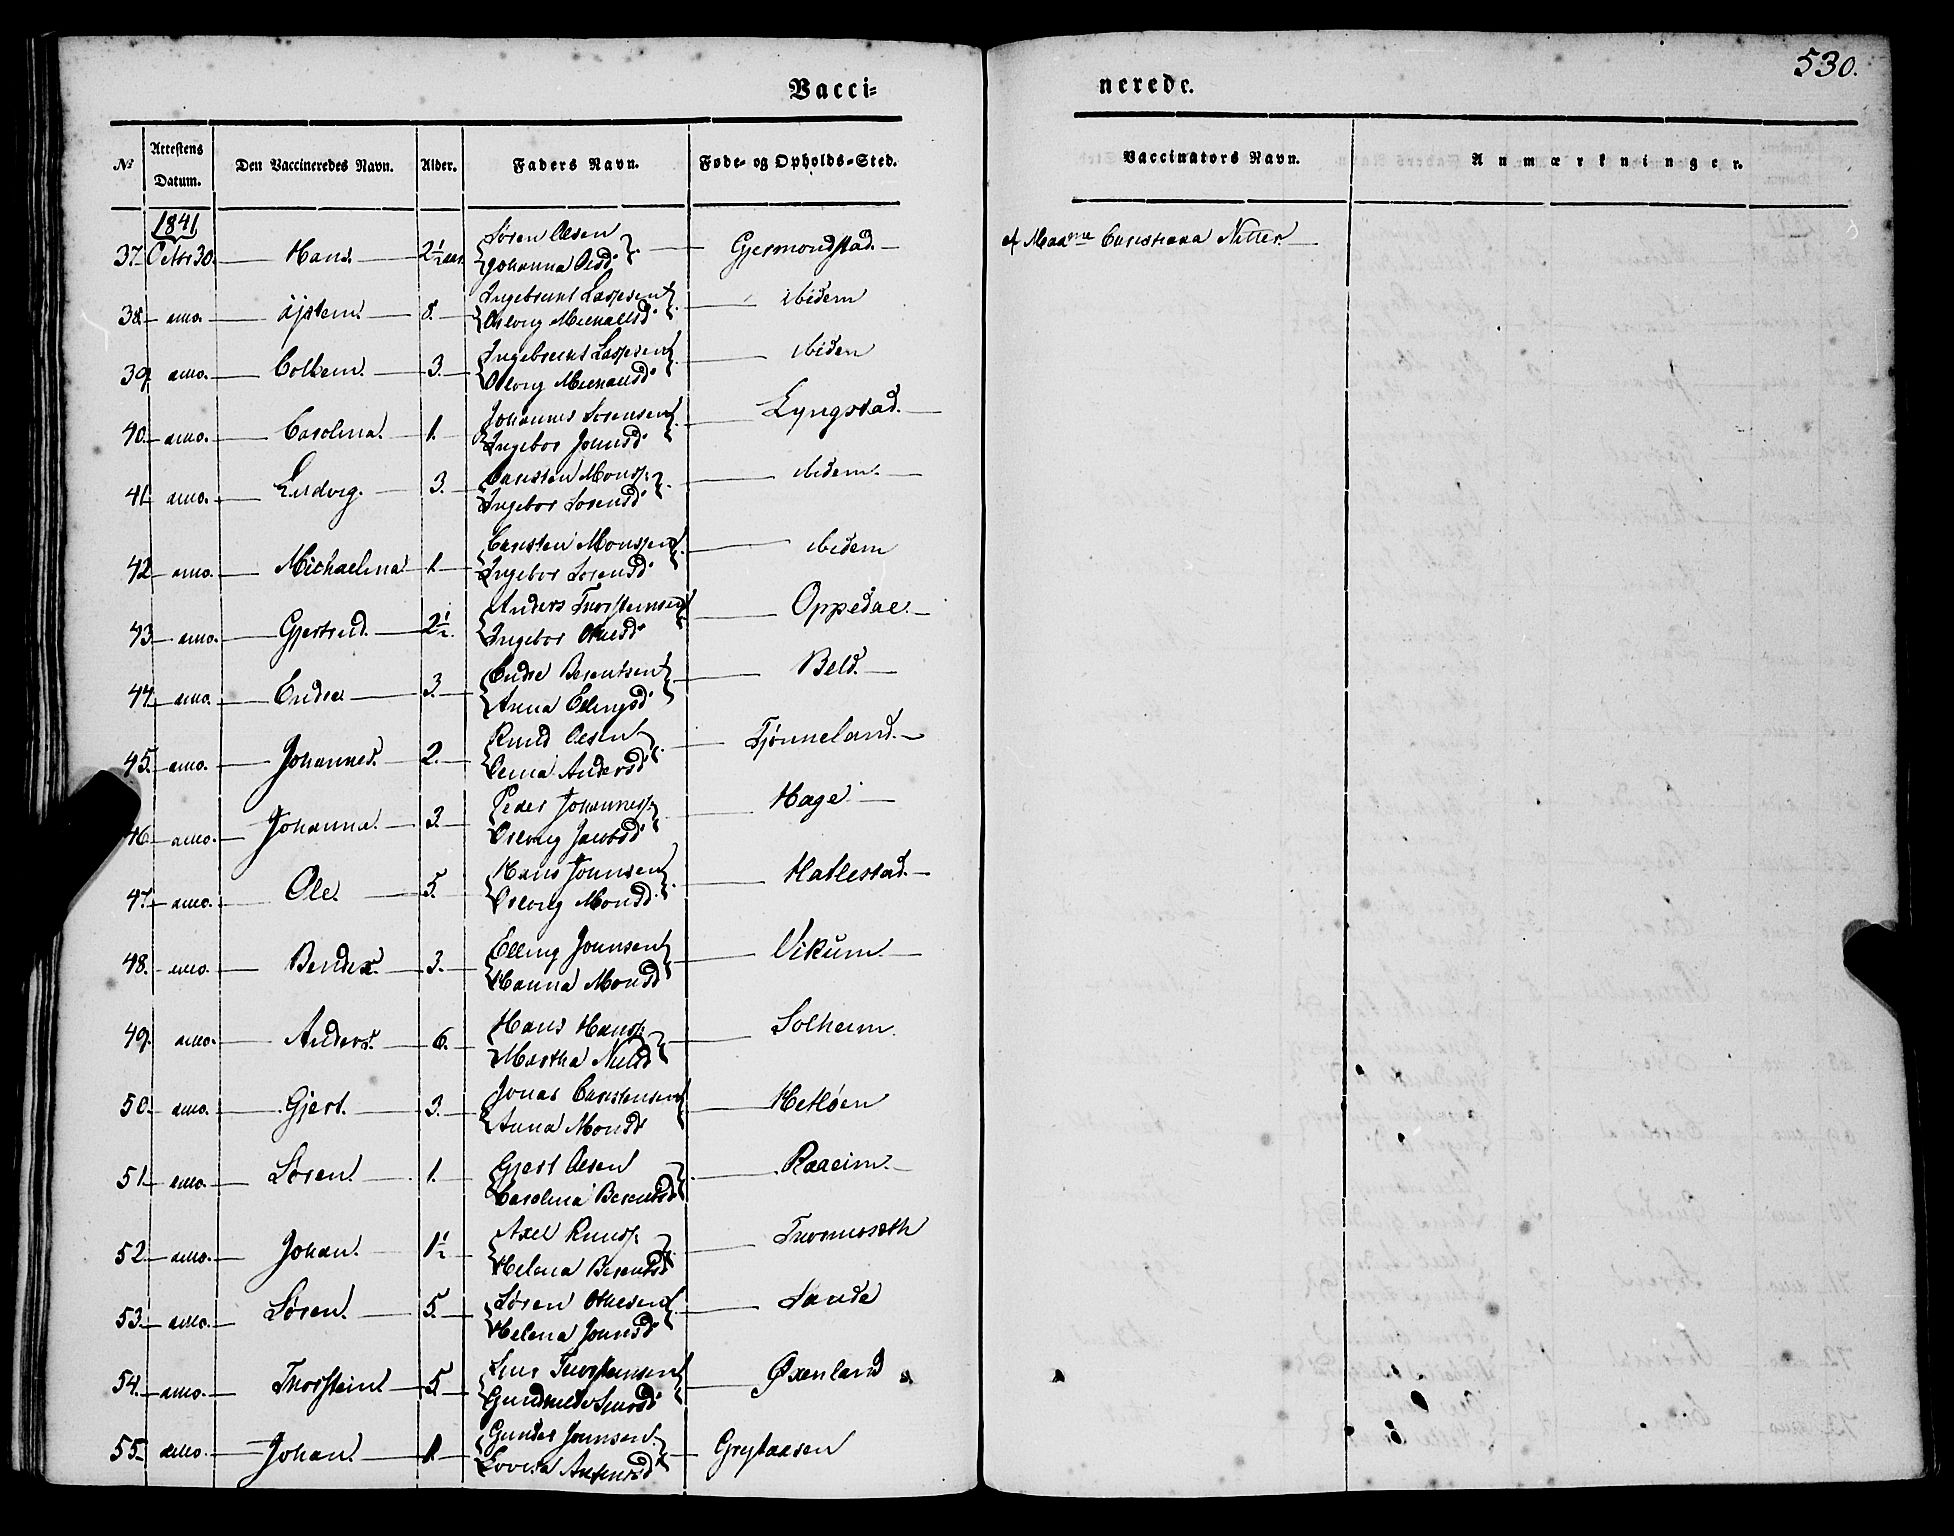 530.
Vacci-
nerede.
№ Attestens Datum. Den Vaccineredes Navn. Alder. Faders Navn. Føde- og Opholds-Sted. Vaccinators Navn. Anmærkninger.
1841
37. Octbr 30. Hans. 2½ aar. Søren Olsen Johanna Olsd. Gjermondstad. af Madme Christiana Nitter
38 ditto. Øjstein. 8. Ingebrickt Lassesen Oslong Michaelsd. ibidem
39 ditto. Colbein. 3. Ingebrickt Lassesen Oslong Michaelsd. ibidem
40 ditto. Carolina. 1. Johannes Sørensen Ingebor Johnsd. Lyngstad.
41 ditto. Ludvig. 3. Carsten Monss. Ingebor Sørensd. ibidem.
42 ditto. Michaelina 1. Carsten Monssen Ingebor Sørensd. ibidem
43 ditto. Gjertrud. 2½. Anders Thorsteinsen Ingebor Othesd. Oppedal.
44 ditto. Endre 3. Endre Berentsen Anna Ellingsd. Beld.
45. ditto. Johannes. 2. Knud Olsen Anders d. Tjønneland.
46 ditto. Johanna. 3. Peder Johanness. Oslong Jacobsd. Hage
47. ditto. Ole. 5. Hans Johnsen Oslong Monsd. Hatlestad.
48. ditto. Bendix. 3. Elling Johnsen Hanna Monsd. Vikum.
49. ditto. Anders. 6. Hans Hanss. Martha Nilsd. Solheim.
50. ditto. Gjert. 3. Jonas Carstensen Anna Monsd. Hetløen
51. ditto. Søren. 1. Gjert Olsen Carolina Berentsd. Raaeim.
52 ditto. Johan. 1½ Axel Knuss. Helena Berentsd.
53. ditto. Søren. 5. Søren Othesen Helena Johnsd. Sande
54. ditto. Thorstein 5. Thorsteinsen Øxenland
55. ditto. Johan. 1. Gunder Johnsen.